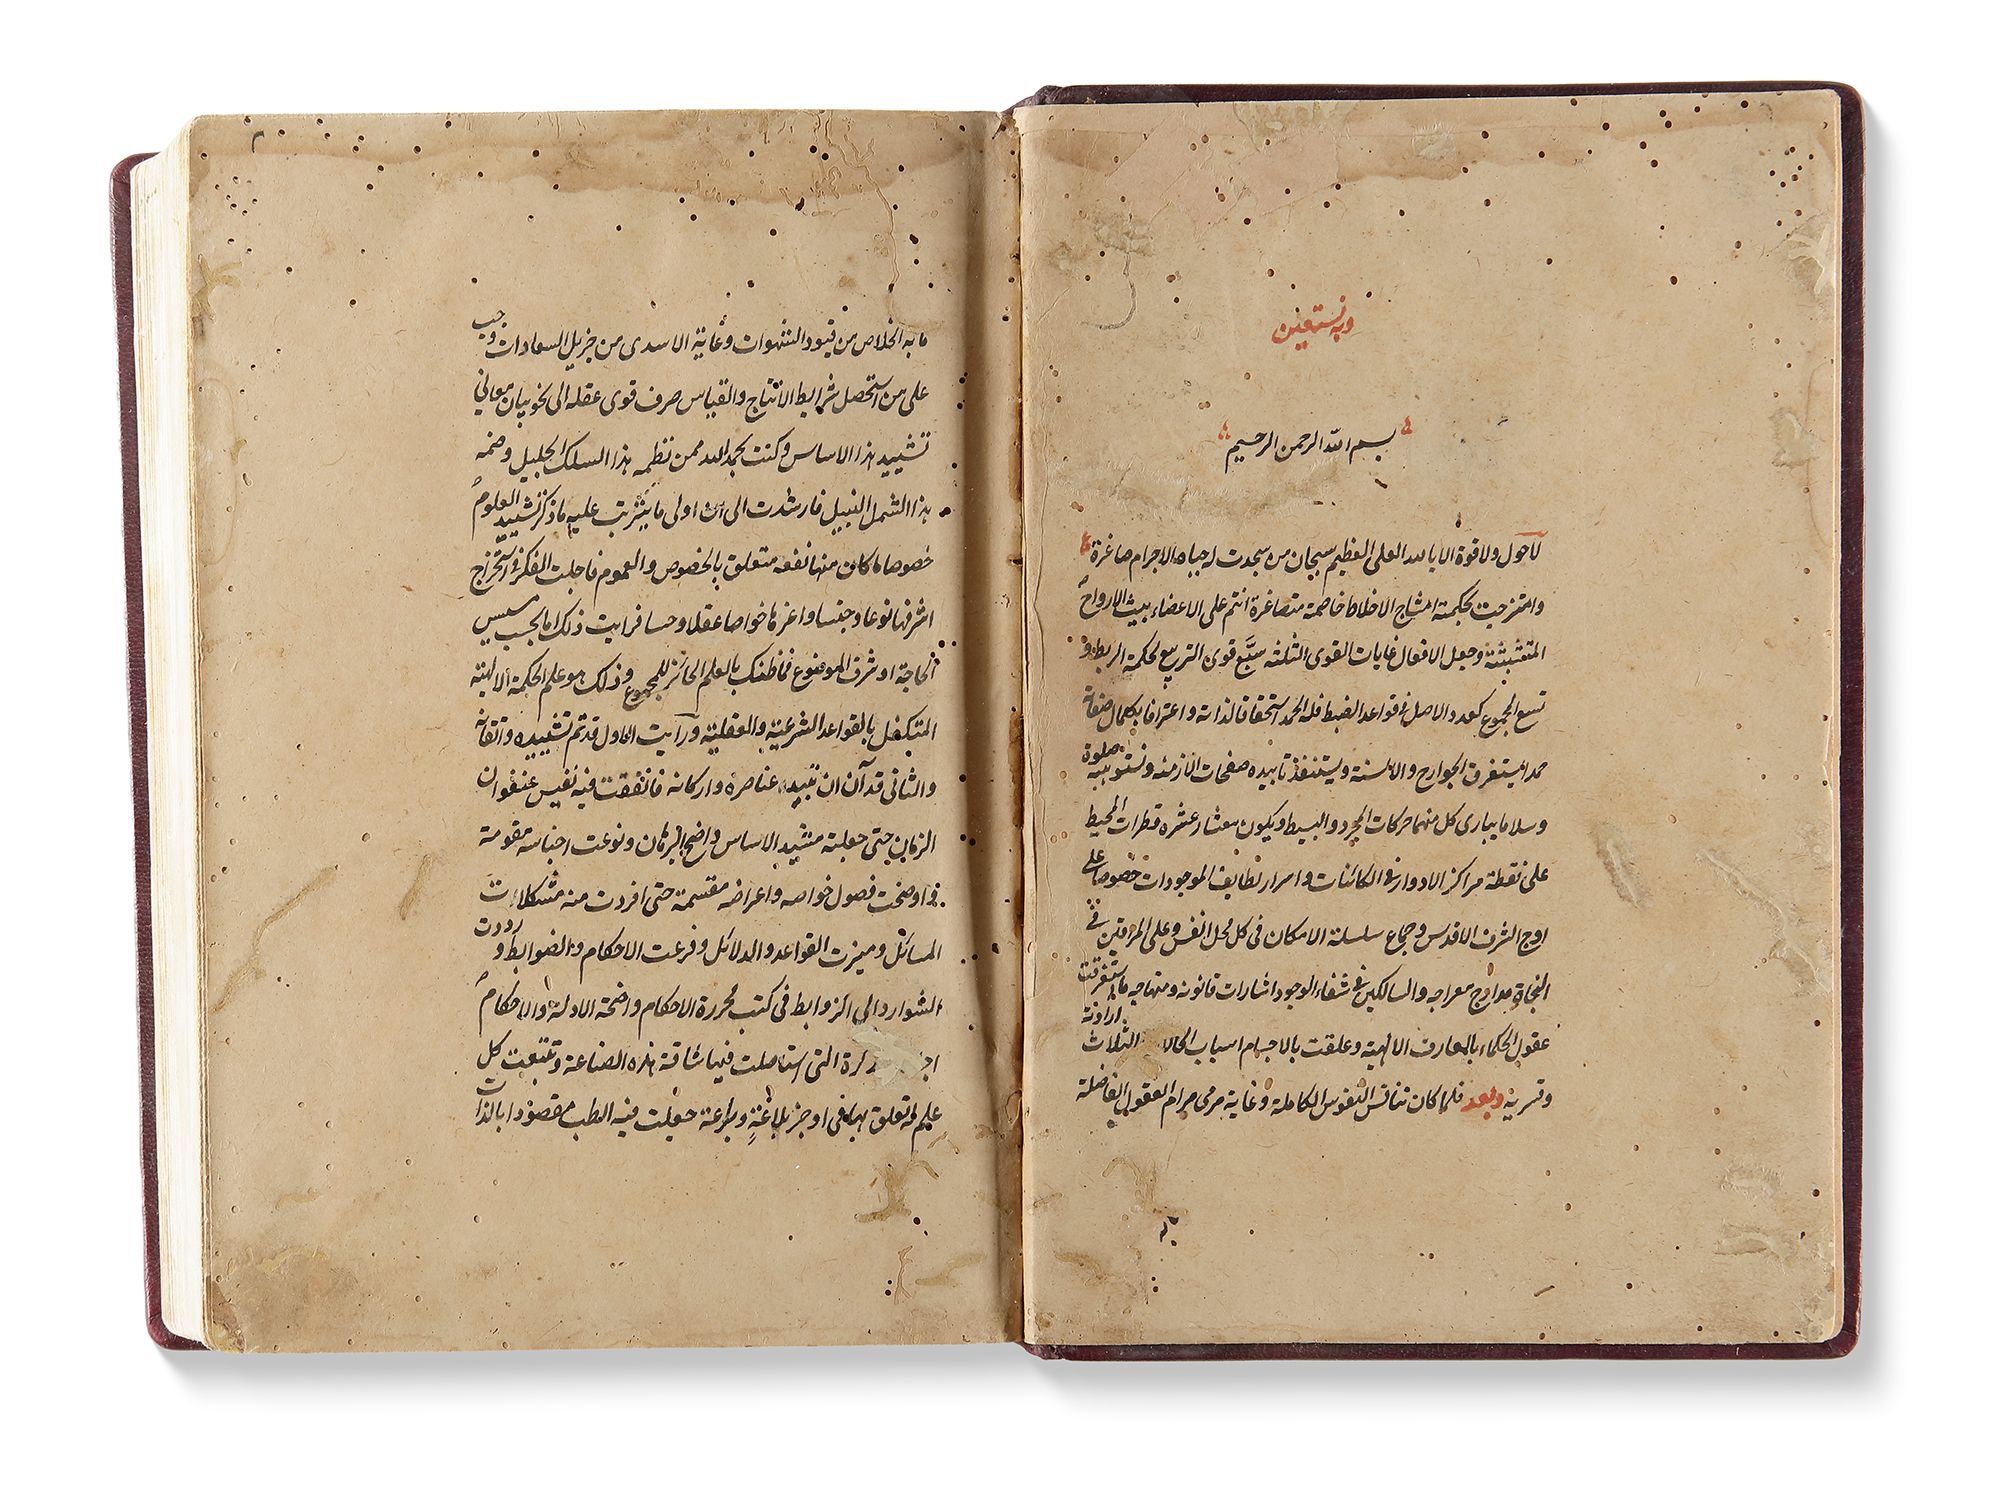 وبه نستعين
بسم الله الرحمن الرحيم
لاحول ولا قوة الا بالله العلى العظيم سبحان من سجدت له جباه الاجرام صاغرة
وامتزجت بحكمته امشاج الاخلاط خاصمة متصاغرة انتم على الاعضاء ببث الارواح
المتشبثة وجعل الافعال غايات القوى الثلثه سبَّع قوى التربيع لحكمة الربط و
تسع المجموع كعدد الاصل فى قواعد الضبط فله الحمد استحقاقا لذاته واعترافا بكمال صفاته
حمدا يستغرق الجوارح والالسنة ويستنفذ تابيده صفحات الازمنه ونستوهبه صلوة
وسلاما يبارى كل منهما حركات المجرد والبسيط ويكون معشار عشره قطرات المحيط
على نقطة مراكز الادوار فى الكائنات واسرار لطايف الموجودات خصوصا على
اوج الشرف الاقدس وجماع سلسلة الامكان فى كل محل انفس وعلى المرقين فى
النجاة مدارج معراجه والسالكين فى شفاء الوجود اشارات قانونه ومنهاجه ما استغرقت
عقول الحكماء بالمعارف الالهية وعلقت بالاجسام اسباب الحالا الثلاث ارادية
وقسرية وبعد فلما كان تنافس النفوس الكاملة وغاية مرمى مرام العقول الفاضلة
ما به الخلاص من قيود الشهوات وغاية الاسدى من جزيل السعادات وجب
على من استحصل شرايط الانتاج والقياس صرف قوى عقله الى نحو بيان معانى
تشييد هذا الاساس وكنت بحمد الله ممن نظمه هذا السلك الجليل وضمه
هذا الشمل النبيل فارشدت الى ان اولى ما يترتب عليه ما ذكر تشييد العلوم
خصوصا ما كان منها نفعه متعلق بالخصوص والعموم فاجلت الفكر فى استخراج
اشرفها نوعا وجنسا واعزها خواصا عقلا وحسا فرايت ذلك اما بحسب مسيس
الحاجة او شرف الموضوع فما ظنك بالعلم الحائز للمجموع وذلك هو علم الحكمة الالهية
المتكفل بالقواعد الشرعية والعقلية ورأيت الاول قد تم تشييده واتقانه
والثانى قد آن ان تبيد عناصره واركانه فانفقت فيه نفيس عنفوان
الزمان حتى جعلته مشيد الاساس واضح البرهان ونوعت اجناسه مقومة
واوضحت فصول خواصه واعراضه مقسمة حتى افردت منه مشكلات
المسائل وميزت القواعد والدلائل وفرعت الاحكام والضوابط ورددت
الشوارد الى الروابط فى كتب محررة الاحكام واضحة الادلة والاحكام
كرة التى استاصلت فيها شاقة هذه الصناعة وتتبعت كل
علم له تعلق بها فى اوجز بلاغة وبراعة جعلت فيه الطب مقصودا بالذات